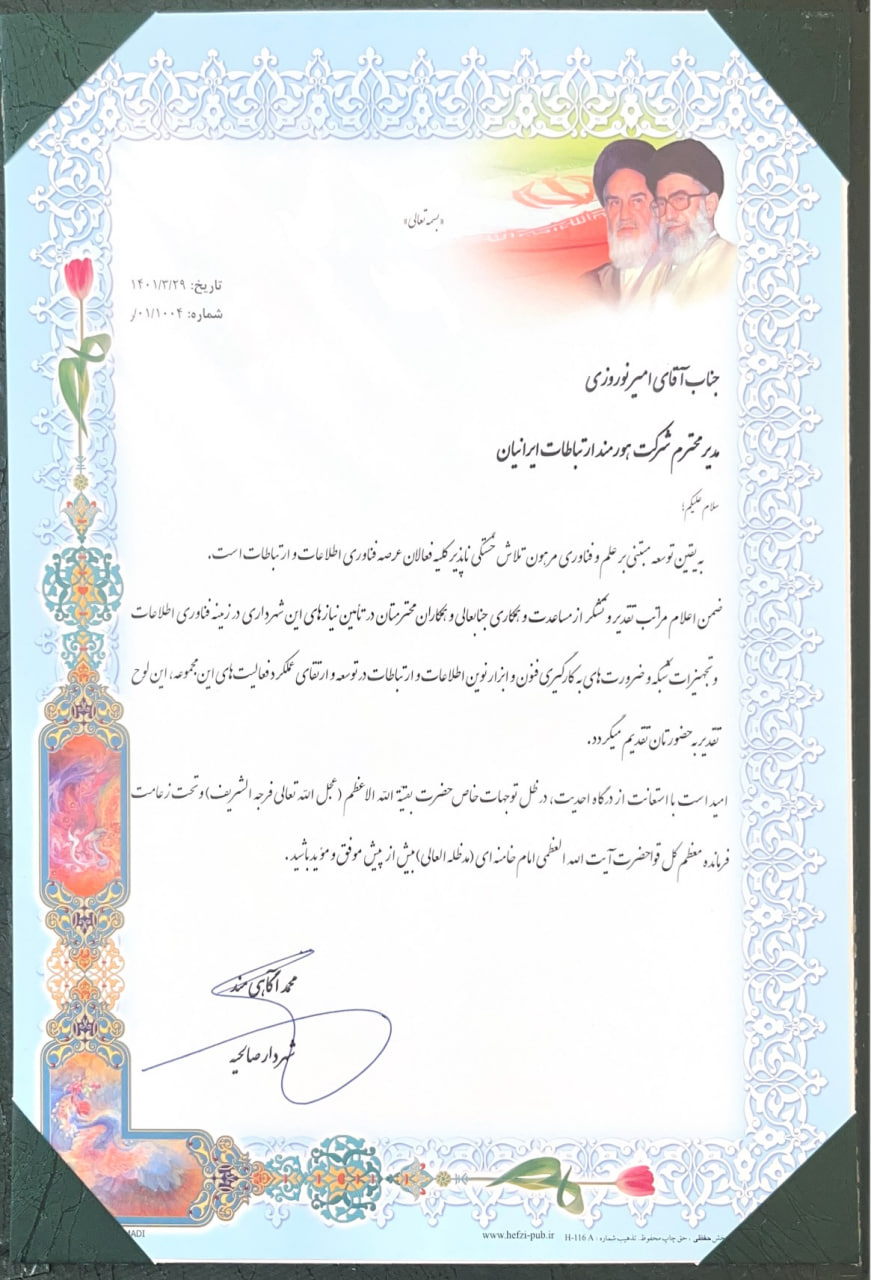 «بسمه تعالی»
تاریخ: ۱۴۰۱/۳/۲۹
شماره: ۰۱/۱۰۰۴/ر
جناب آقای امیر نوروزی
مدیر محترم شرکت هورمند ارتباطات ایرانیان
سلام علیکم؛
به یقین توسعه مبتنی بر علم و فناوری مرهون تلاش خستگی ناپذیر کلیه فعالان عرصه فناوری اطلاعات و ارتباطات است.
ضمن اعلام مراتب تقدیر و تشکر از مساعدت و همکاری جنابعالی و همکاران محترمتان در تأمین نیازهای این شهرداری در زمینه فناوری اطلاعات
و تجهیزات شبکه و ضرورت های به کارگیری فنون و ابزار نوین اطلاعات و ارتباطات در توسعه و ارتقای عملکرد فعالیت های این مجموعه، این لوح
تقدیر به حضورتان تقدیم میگردد.
امید است با استعانت از درگاه احدیت، در ظل توجهات خاص حضرت بقیة الله الاعظم (عجل الله تعالی فرجه الشریف) و تحت زعامت
فرمانده معظم کل قوا حضرت آیت الله العظمی امام خامنه ای (مدظله العالی) بیش از پیش موفق و مؤید باشید.
محمد آگاهی مند
شهردار صالحیه
www.hefzi-pub.ir
پخش حفظی، حق چاپ محفوظ. تذهیب شماره: H-116 A